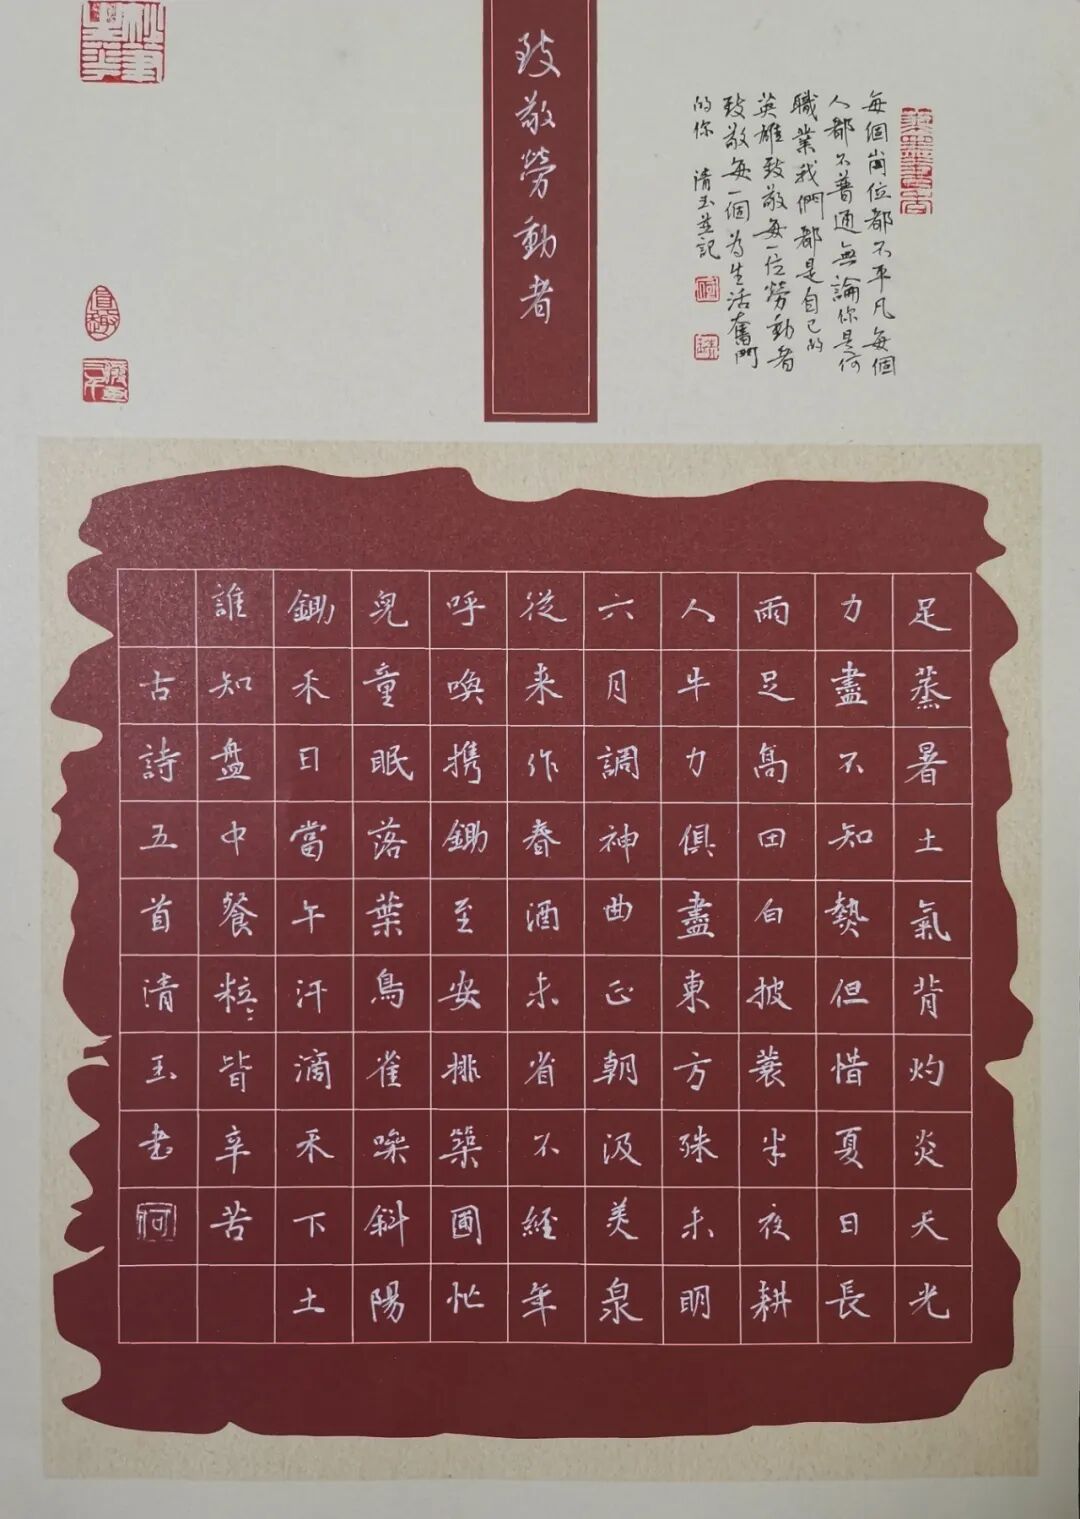 致敬勞動者
每個崗位都不平凡每個
人都不普通無論你是何
職業我們都是自己的
英雄致敬每一位勞動者
致敬每一個為生活奮鬥
的你 清玉並記
足蒸暑土氣背灼炎天光
力盡不知熱但惜夏日長
雨足高田白披蓑半夜耕
人牛力俱盡東方殊未明
六月調神曲正朝汲美泉
從来作春酒未省不經年
呼喚携鋤至安排築圃忙
兒童眠落葉鳥雀噪斜陽
鋤禾日當午汗滴禾下土
誰知盤中餐粒〻皆辛苦
古詩五首清玉书
何